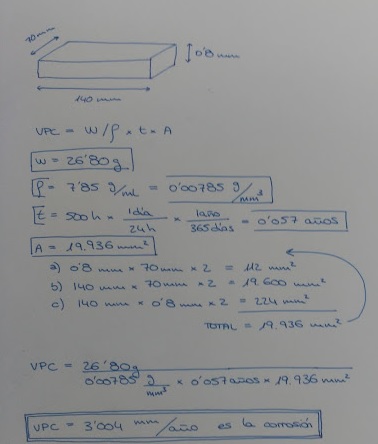 70 mm
0'8 mm
140 mm
VPC = W/ρ × t × A
W = 26'80 g
ρ = 7'85 g/mL = 0'00785 g/mm³
t = 500h × 1 día/24h × 1 año/365 días = 0'057 años
A = 19.936 mm²
a) 0'8 mm × 70 mm × 2 = 112 mm²
b) 140 mm × 70 mm × 2 = 19.600 mm²
c) 140 mm × 0'8 mm × 2 = 224 mm²
TOTAL = 19.936 mm²
VPC = 26'80g
0'00785 g/mm³ × 0'057 años × 19.936 mm²
VPC = 3'004 mm/año es la corrosión